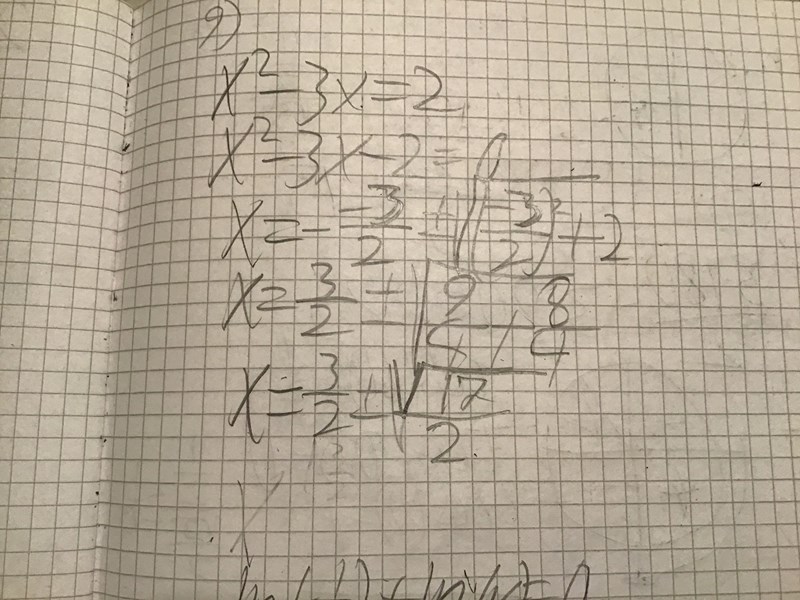 9)
x² - 3x = 2
x² - 3x - 2 = 0
x = - -3/2 ± √((-3/2)² + 2)
x = 3/2 ± √(9/4 + 8/4)
x = 3/2 ± √17/2
x